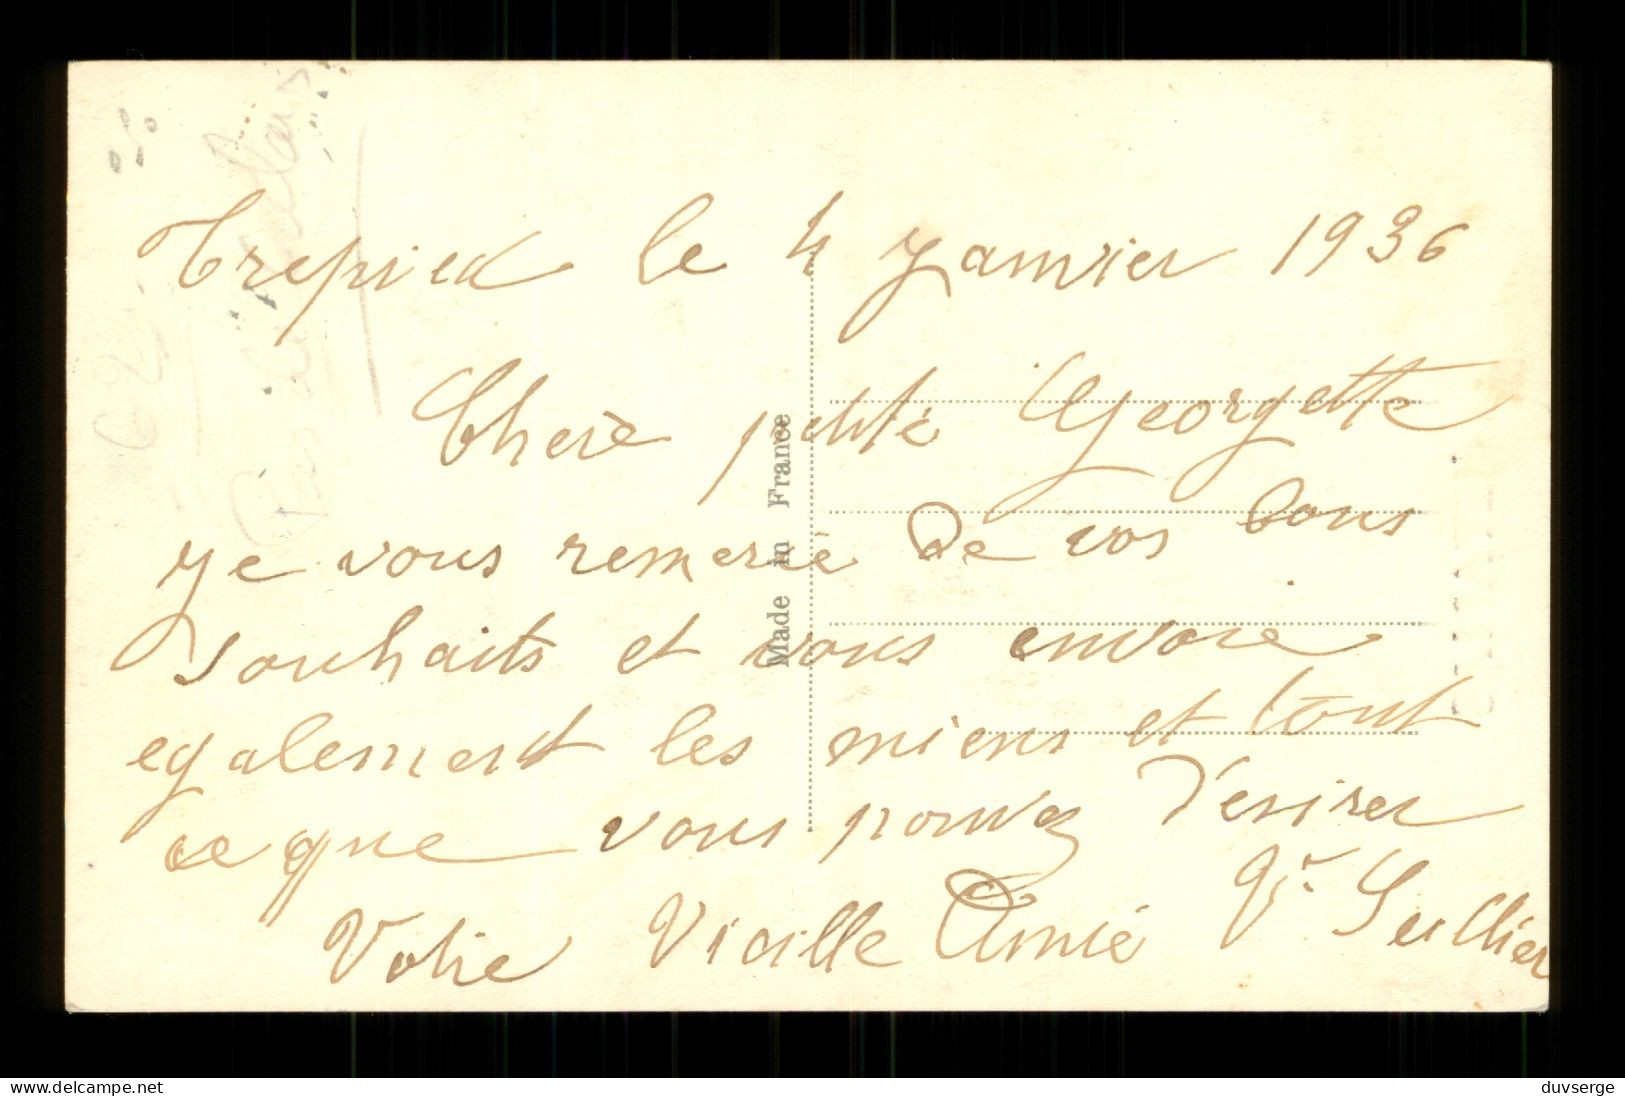 Trepied le 4 Janvier 1936
Chere petite Georgette
Je vous remercie de vos bons
souhaits et vous envoie
egalement les miens et tout
ce que vous pouvez désirer
Votre Vieille Amie Vve
Made in France
62
Pas de Calais
www.delcampe.net
duvserge